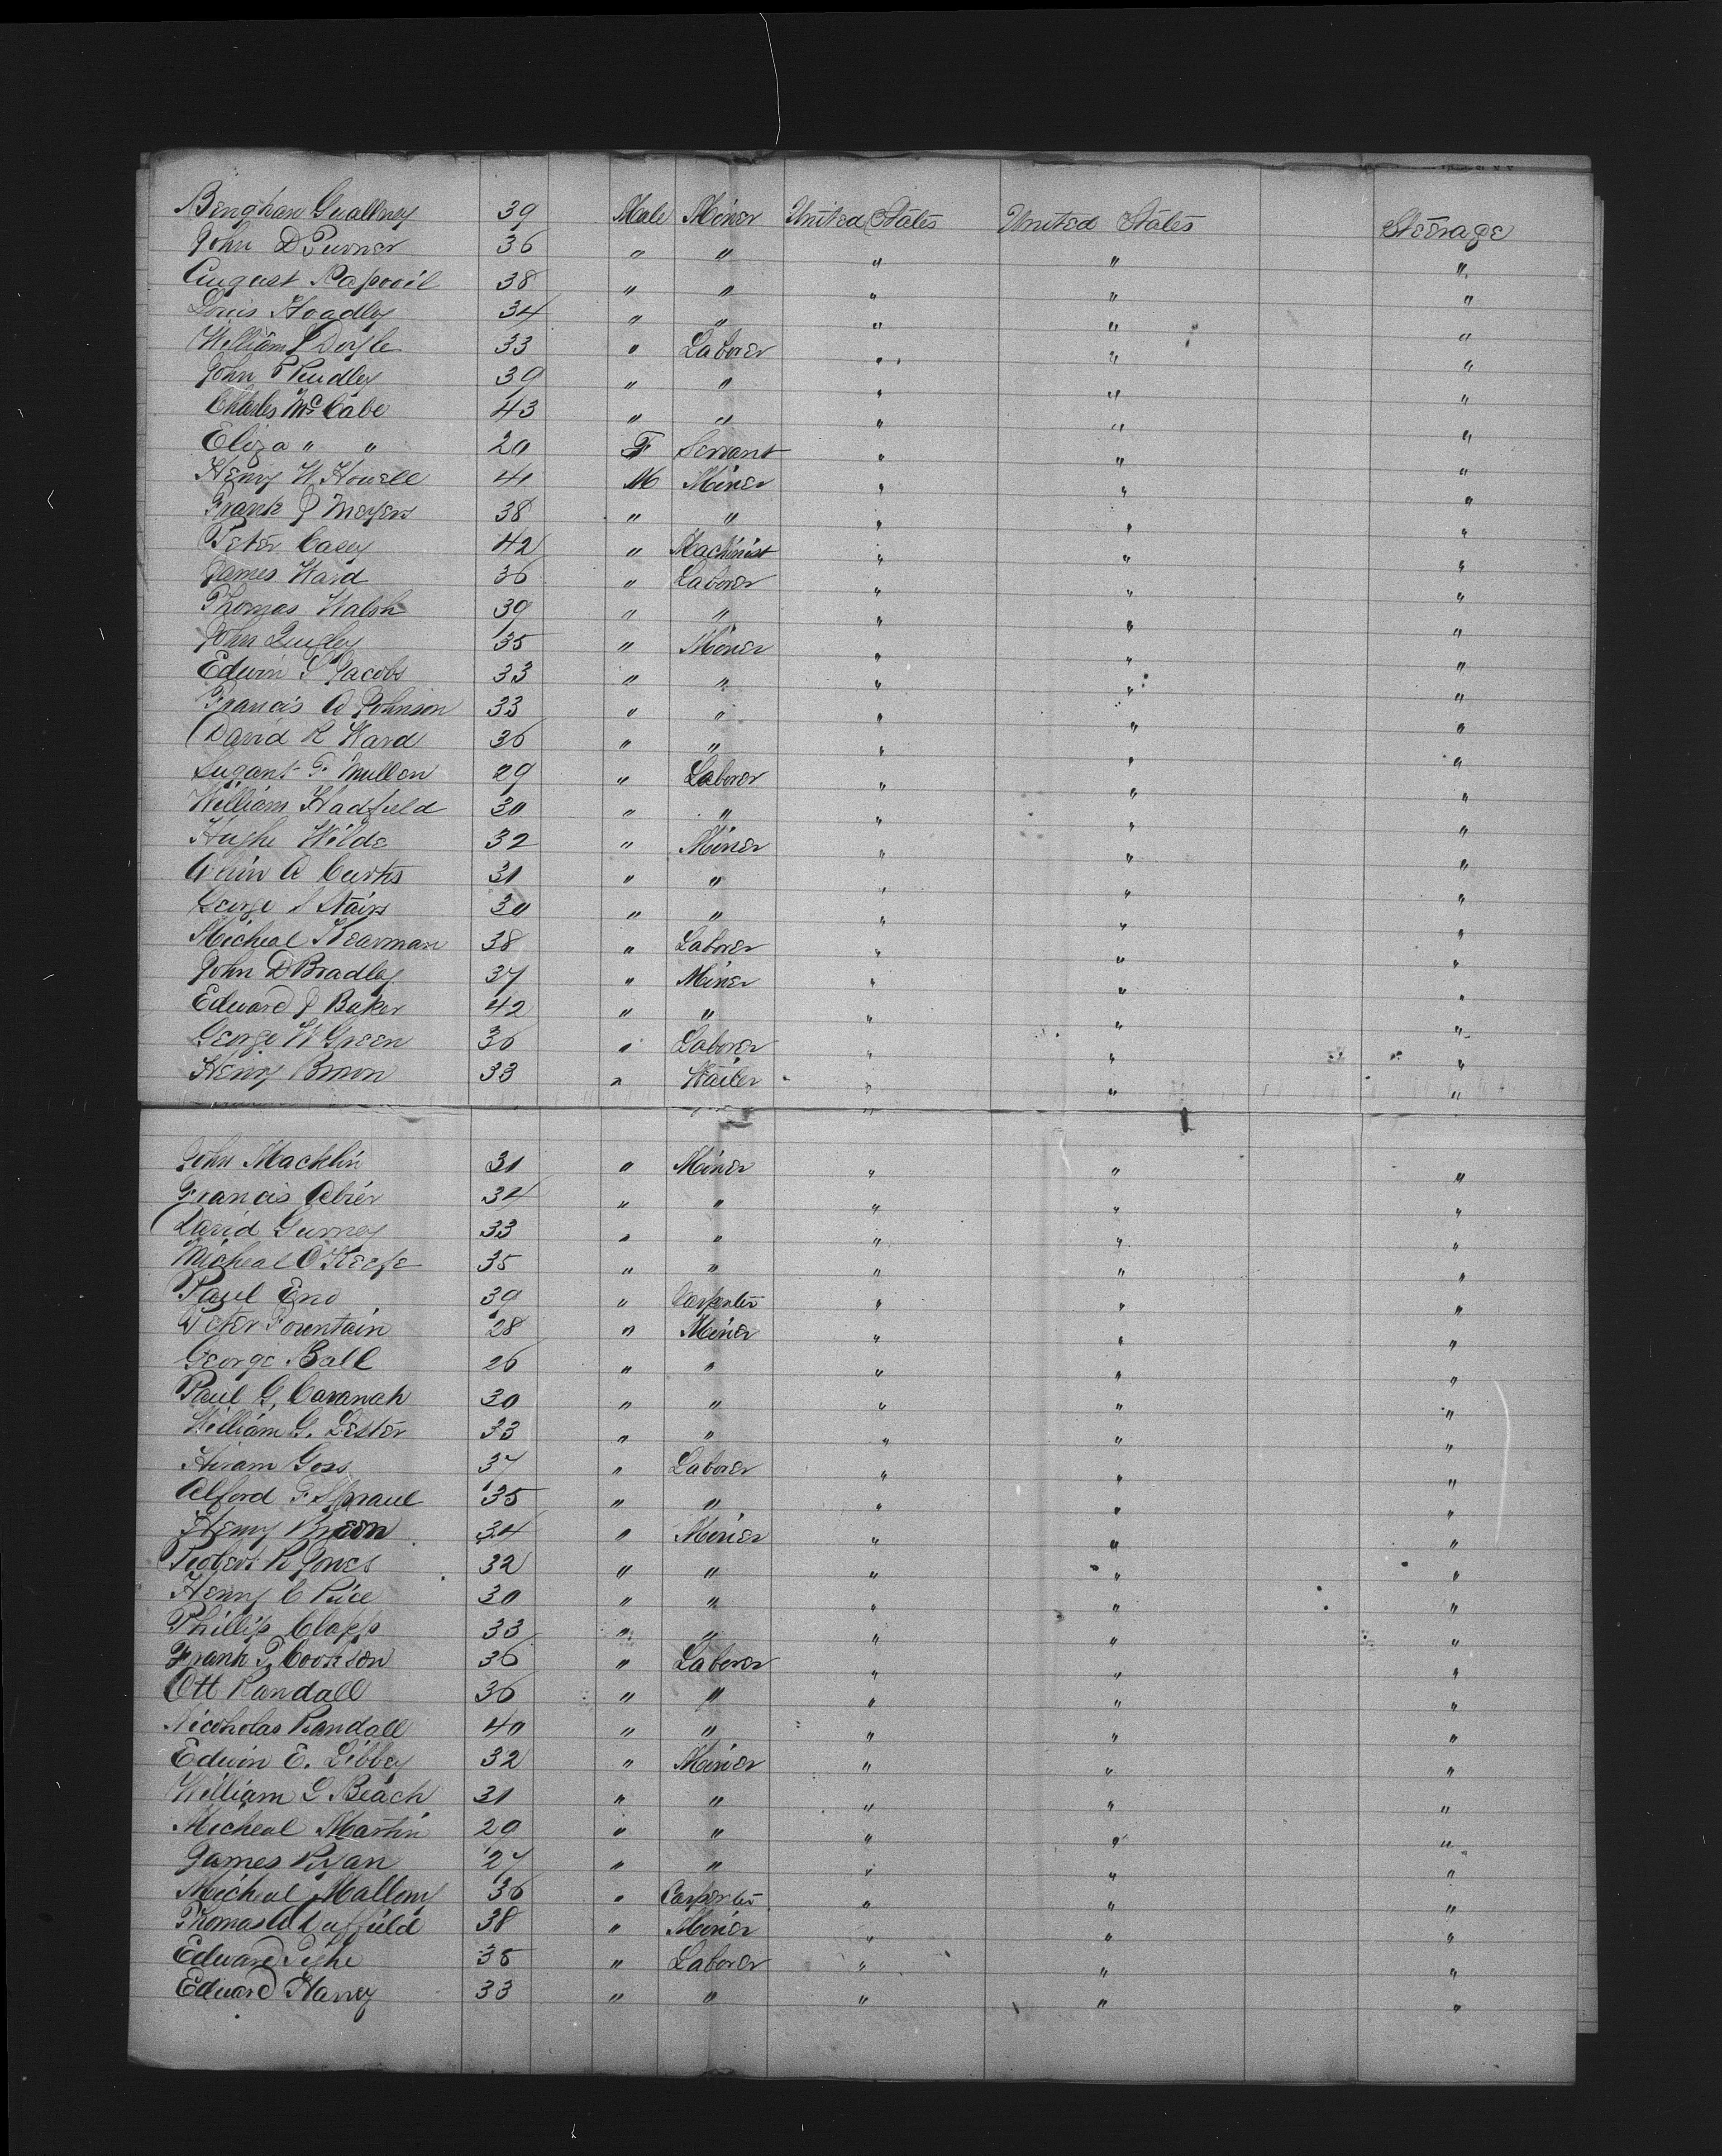 Benghan Gwaltney 39 Male Miner United States United States Steerage
John D Turner 36 " " " " "
August 38 " " " " "
Louis Hoadley 34 " " " " "
William J Doyle 33 " Laborer " " "
John Rudley 39 " " " " "
Charles McCabe 43 " " " " "
Eliza " " 20 F Servant " " "
Henry W. Howell 41 M Miner " " "
Frank J Meyers 38 " " " " "
Peter Casey 42 " Machinist " " "
James Ward 36 " Laborer " " "
Thomas Walsh 39 " " " " "
John Quigley 35 " Miner " " "
Edwin S Jacobs 33 " " " " "
Francis A Johnson 33 " " " " "
David R Ward 36 " " " " "
F Mullen 29 " Laborer " " "
William Hadfield 30 " " " " "
Hugh Wilde 32 " Miner " " "
A Curtis 31 " " " " "
George S Stairs 30 " " " " "
Micheal Kearman 38 " Laborer " " "
John D Bradley 37 " Miner " " "
Edward J Baker 42 " " " " "
George W Green 36 " Laborer " " "
Henry Brown 33 " Waiter " " "
John Macklin 31 " Miner " " "
Francis 34 " " " " "
David Gurney 33 " " " " "
Micheal O'Keefe 35 " " " " "
Paul Eno 39 " Carpenter " " "
Peter Fountain 28 " Miner " " "
George Ball 26 " " " " "
Paul G. Cavanah 30 " " " " "
William G. Lester 33 " " " " "
Hiram Goss 37 " Laborer " " "
Alford F Spraul 35 " " " " "
Henry Breen 34 " Miner " " "
Robert R Jones 32 " " " " "
Henry C Rice 30 " " " " "
Phillip Clapp 33 " " " " "
Frank P. Cookson 36 " Laborer " " "
Ott Randall 36 " " " " "
Nicoholas Randall 40 " " " " "
Edwin E. Libbey 32 " Miner " " "
William G Beach 31 " " " " "
Micheal Martin 29 " " " " "
James Ryan 27 " " " " "
Micheal Mallony 36 " Carpenter " " "
Thomas A Duffield 38 " Miner " " "
Edward Tighe 38 " Laborer " " "
Edward Harvey 33 " " " " "